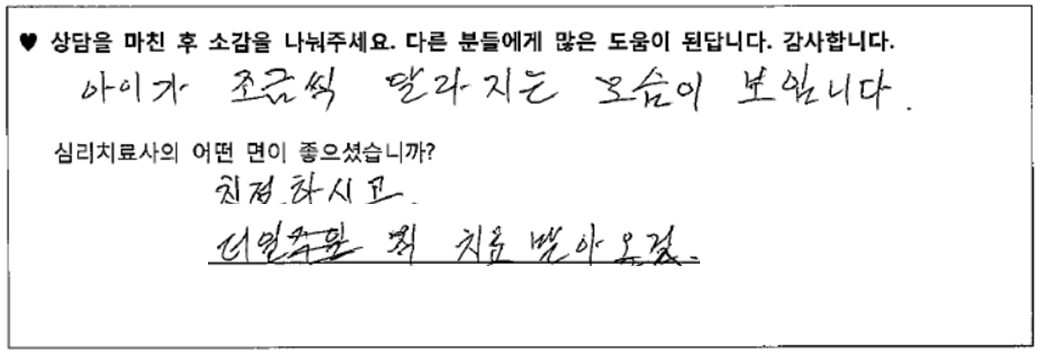 ♥ 상담을 마친 후 소감을 나눠주세요. 다른 분들에게 많은 도움이 된답니다. 감사합니다.
아이가 조금씩 달라지는 모습이 보입니다.
심리치료사의 어떤 면이 좋으셨습니까?
친절하시고.
치료 받아